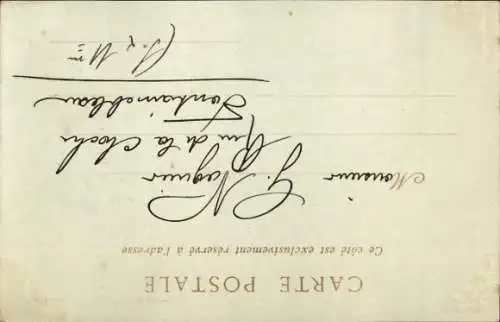 CARTE POSTALE
Ce côté est exclusivement réservé à l'adresse
Monsieur
G. Nagnier
Rue de la Cloche
Fontainebleau
(S. & M.)